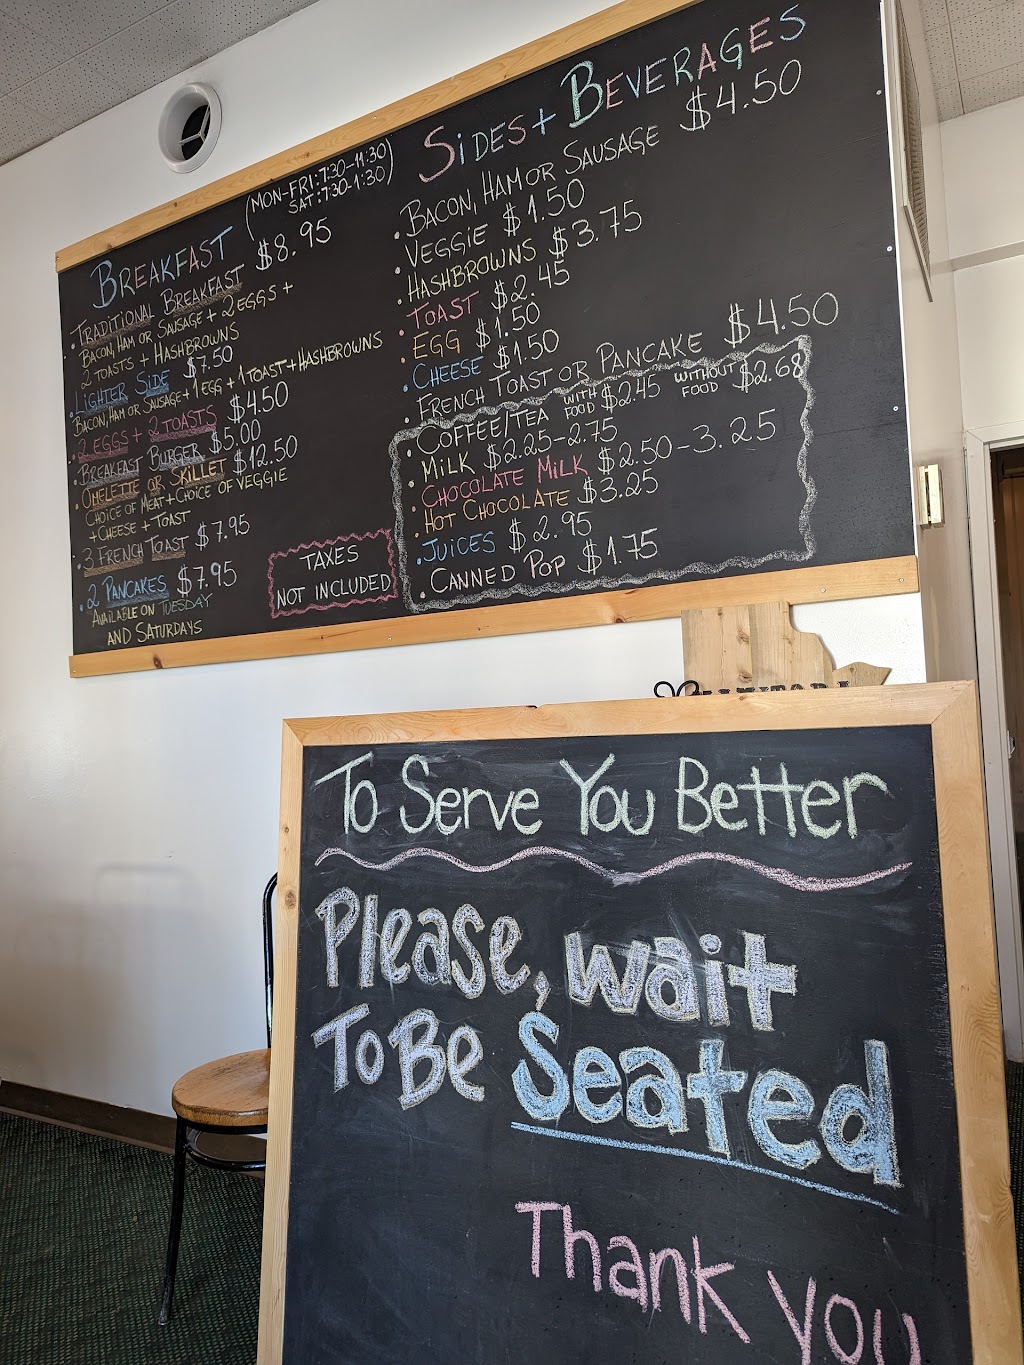 BREAKFAST (MON-FRI: 7:30-11:30)
SAT: 7:30-1:30)
TRADITIONAL BREAKFAST $8.95
BACON, HAM OR SAUSAGE + 2 EGGS +
2 TOASTS + HASHBROWNS
LIGHTER SIDE $7.50
BACON, HAM OR SAUSAGE + 1 EGG + 1 TOAST + HASHBROWNS
2 EGGS + 2 TOASTS $4.50
BREAKFAST BURGER $5.00
OMELETTE OR SKILLET $12.50
CHOICE OF MEAT + CHOICE OF VEGGIE
+ CHEESE + TOAST
3 FRENCH TOAST $7.95
2 PANCAKES $7.95
AVAILABLE ON TUESDAY
AND SATURDAYS
TAXES
NOT INCLUDED
SIDES + BEVERAGES
BACON, HAM OR SAUSAGE $4.50
VEGGIE $1.50
HASHBROWNS $3.75
TOAST $2.45
EGG $1.50
CHEESE $1.50
FRENCH TOAST OR PANCAKE $4.50
COFFEE/TEA WITH FOOD $2.45 WITHOUT FOOD $2.68
MILK $2.25-2.75
CHOCOLATE MILK $2.50-3.25
HOT CHOCOLATE $3.25
JUICES $2.95
CANNED POP $1.75
To Serve You Better
Please, wait
To Be Seated
Thank you